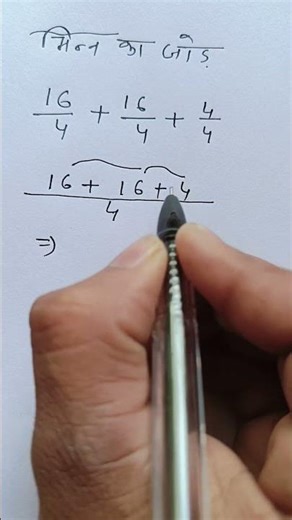 भिन्न का जोड़
16/4 + 16/4 + 4/4
16 + 16 + 4 / 4
⇒